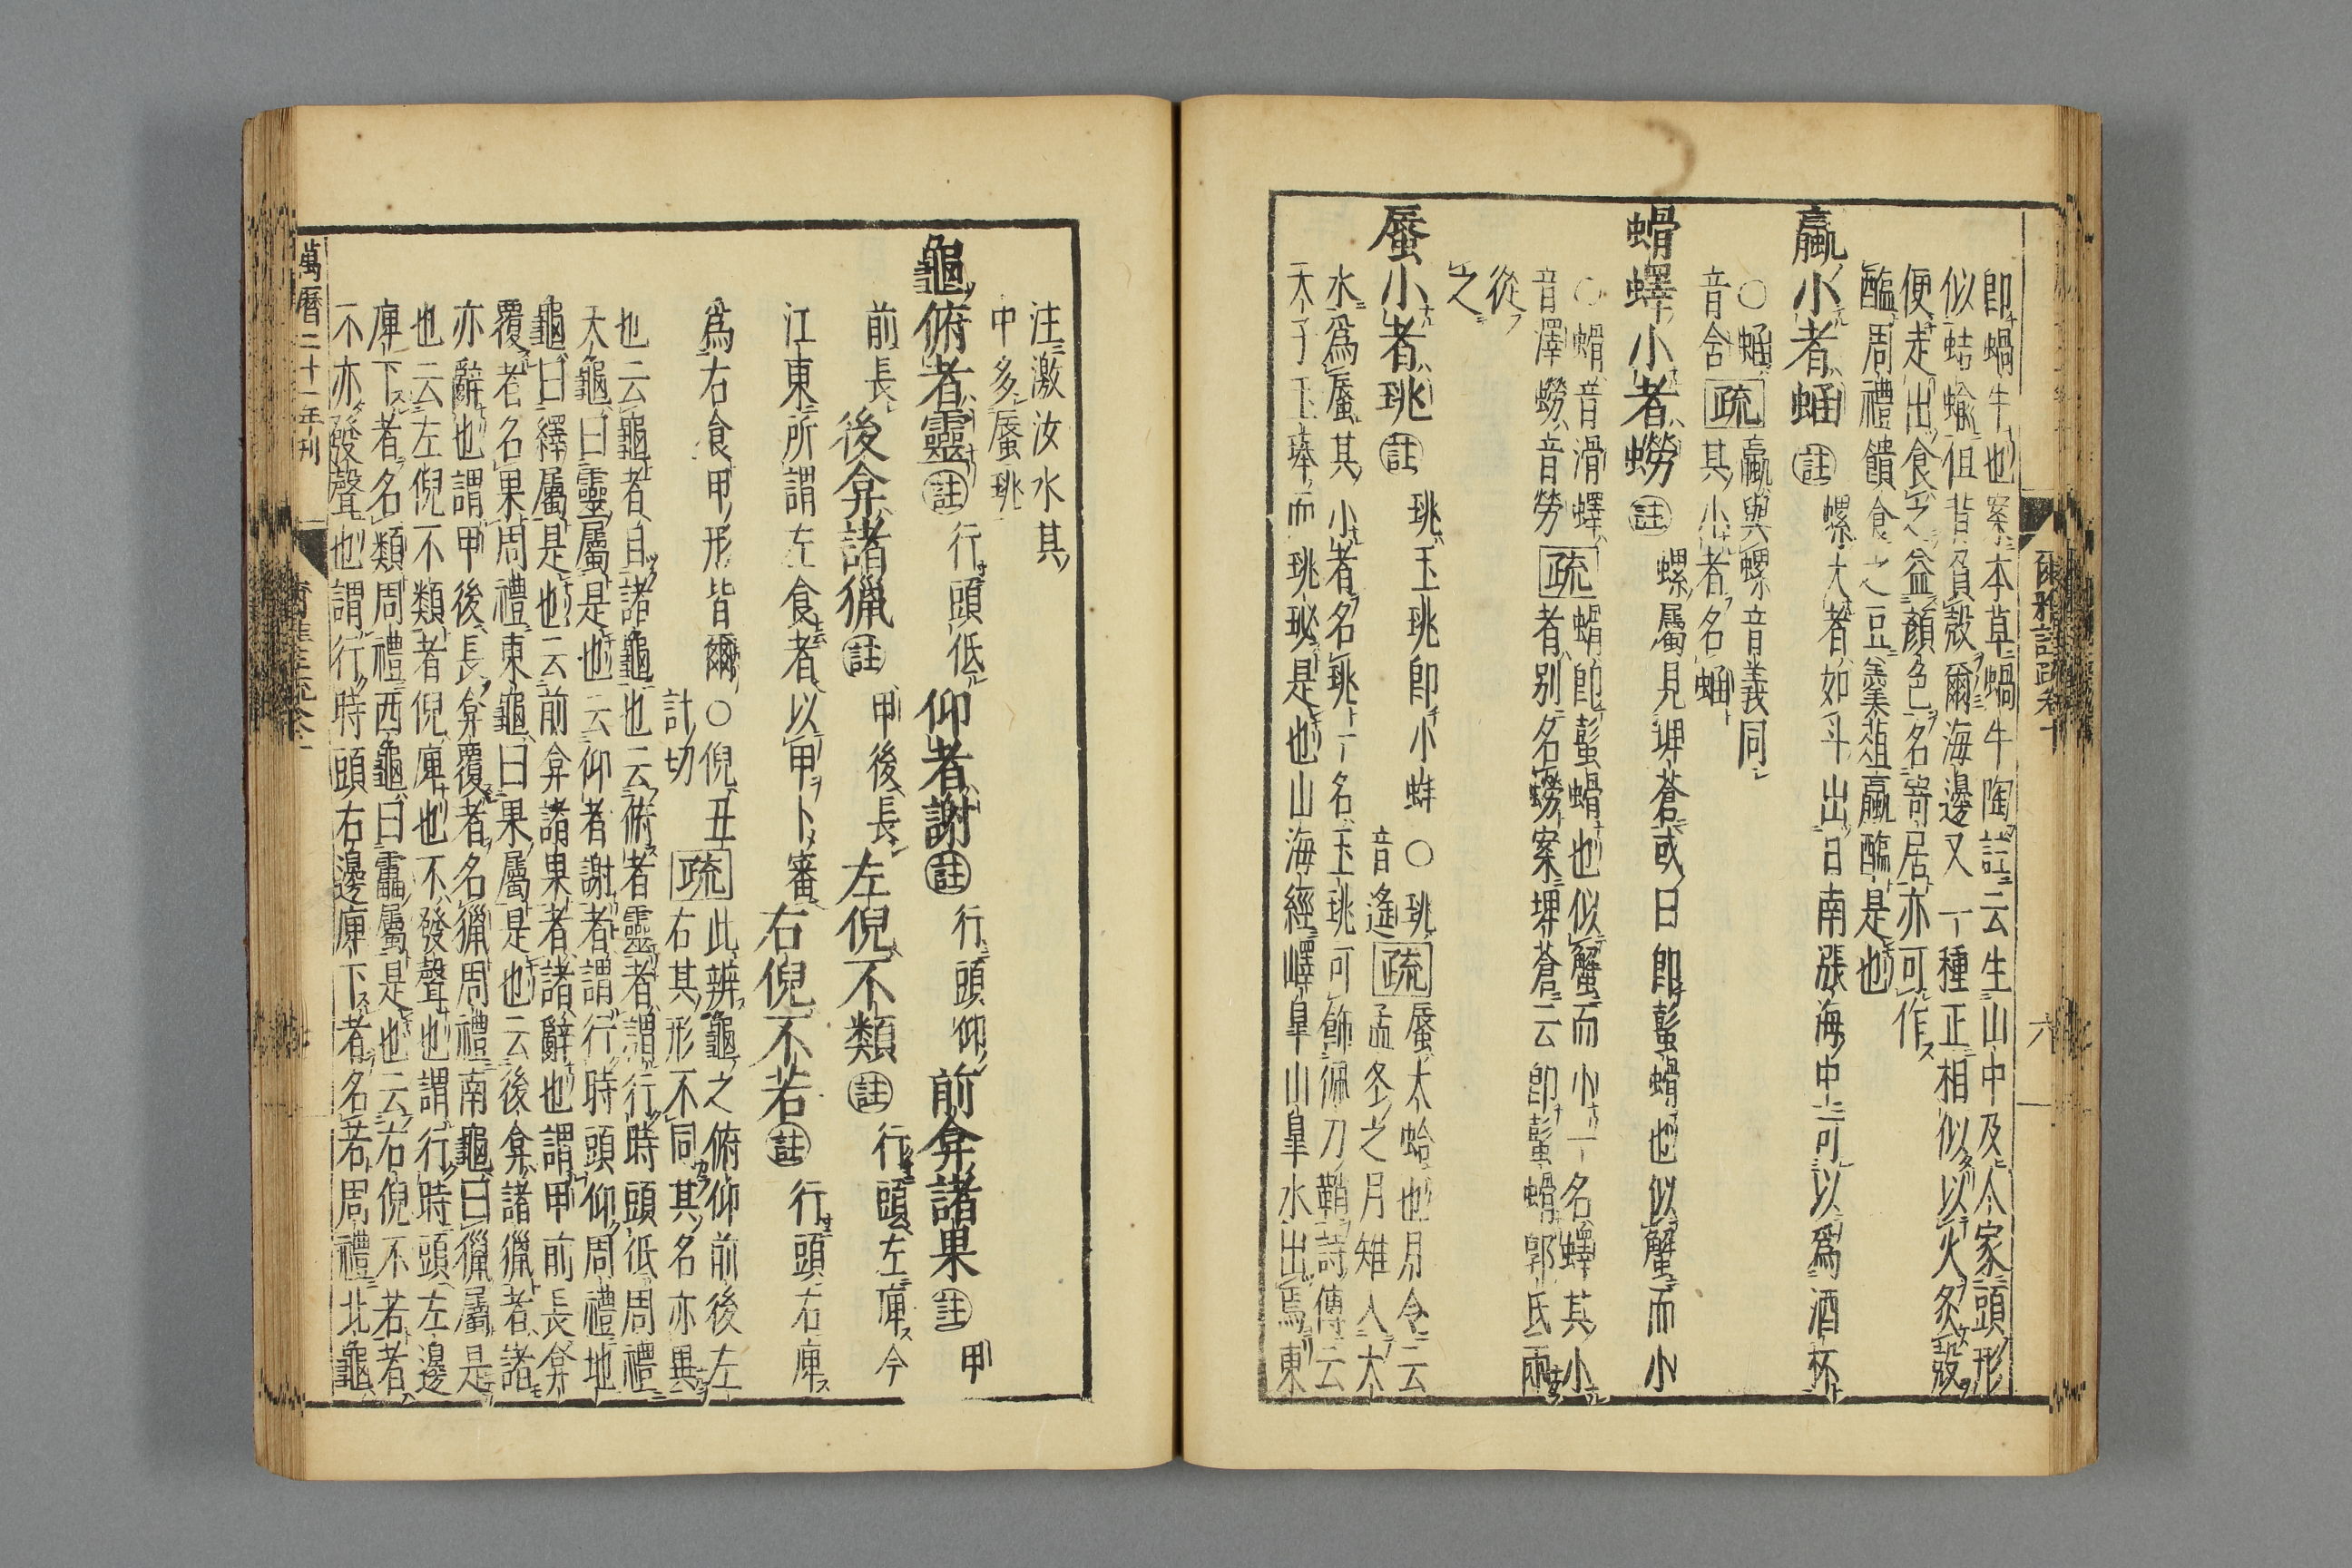 爾雅註疏卷十
六
即蝸牛也案本草蝸牛陶註云生山中及人家頭形
似蛞蝓但背負殼爾海邊又一種正相似以火炙殼
便走出食之益顏色名寄居亦可作
醢周禮饋食之豆葵菹蠃醢是也
蠃小者蜬註螺大者如斗出日南漲海中可以爲酒杯
○蜬音含疏蠃與螺音義同其小者名蜬
螖蠌小者蟧註螺屬見埤蒼或曰即蟛螖也似蟹而小
○螖音滑蠌音澤蟧音勞疏螖即蟛螖也似蟹而小一名蠌其小者別名蟧案埤蒼云即蟛螖郭氏兩
從之
蜃小者珧註珧玉珧即小蚌○珧音遙疏蜃大蛤也月令云孟冬之月雉入大
水爲蜃其小者名珧一名玉珧可飾佩刀鞘詩傳云
天子玉琫而珧珌是也山海經嶧皐山皐水出焉東
注激汝水其中多蜃珧
龜俯者靈註行頭低仰者謝註行頭仰前弇諸果註甲
前長後弇諸獵註甲後長左倪不類註行頭左庳今
江東所謂左食者以甲卜審右倪不若註行頭右庳
爲右食甲形皆爾○倪五計切疏此辨龜之俯仰前後左右其形不同其名亦異
也云龜者目諸龜也云俯者靈者謂行時頭低周禮
天龜曰靈屬是也云仰者謝者謂行時頭仰周禮地
龜曰繹屬是也云前弇諸果者諸辭也謂甲前長弇
覆者名果周禮東龜曰果屬是也云後弇諸獵者諸
亦辭也謂甲後長弇覆者名獵周禮南龜曰獵屬是
也云左倪不類者倪庳也不發聲也謂行時頭左邊
庳下者名類周禮西龜曰靁屬是也云右倪不若者
不亦發聲也謂行時頭右邊庳下者名若周禮北龜
萬曆二十一年刊